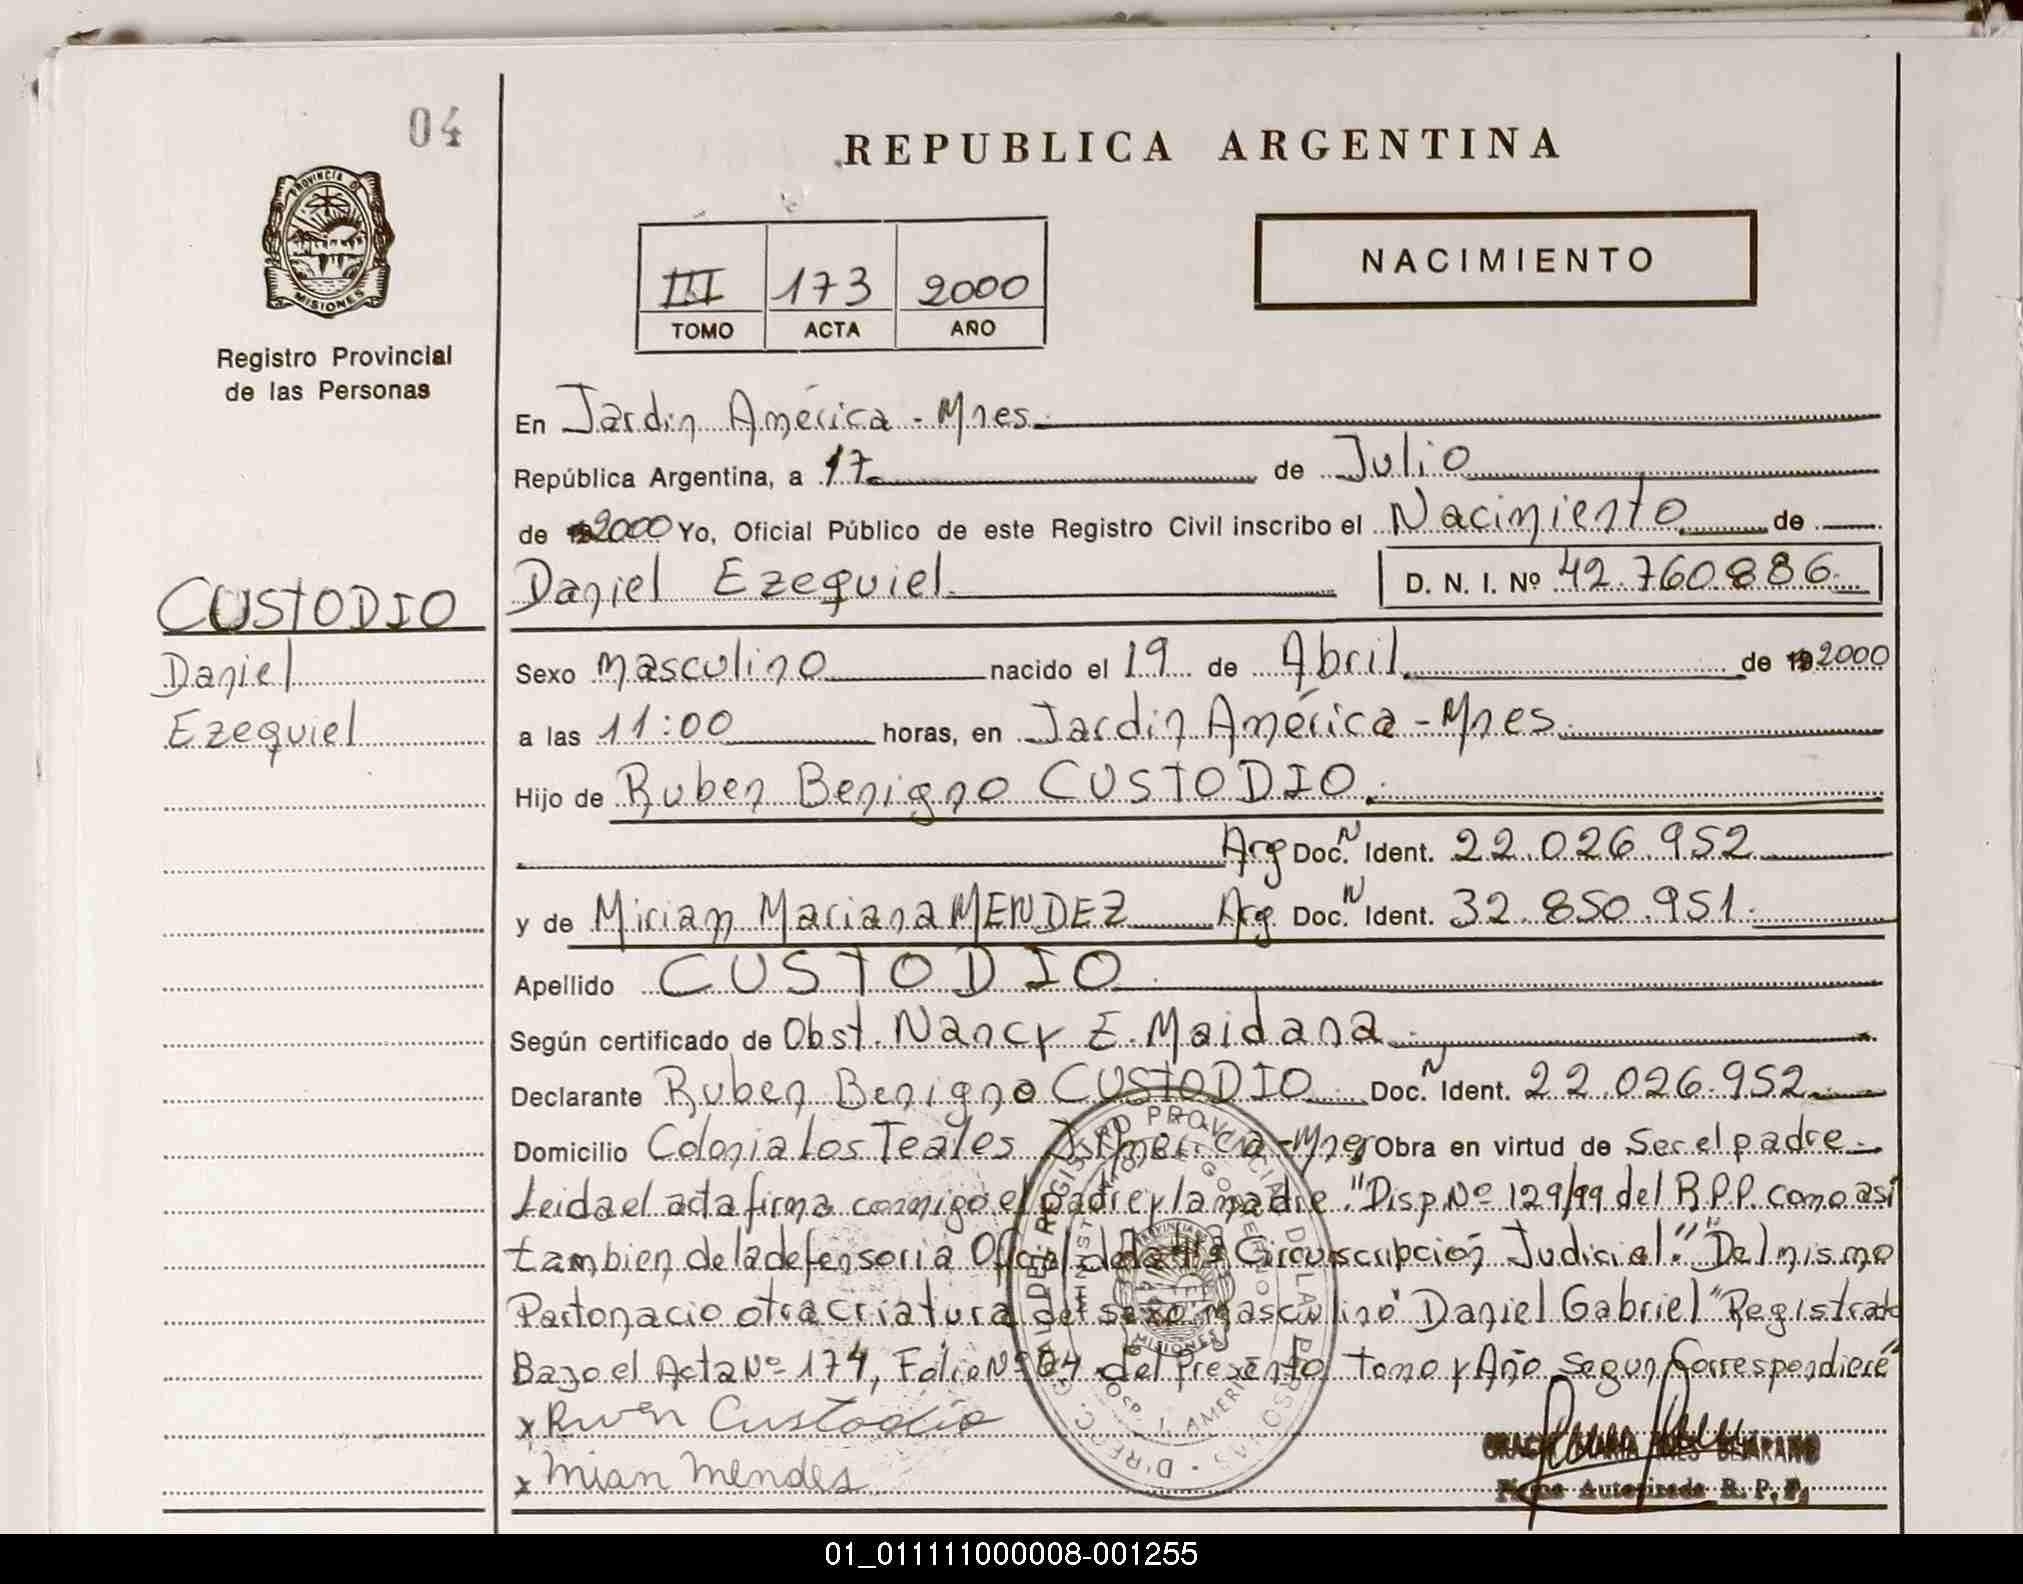 04
REPUBLICA ARGENTINA
PROVINCIA DE
MISIONES
Registro Provincial
de las Personas
III 173 2000
TOMO ACTA AÑO
NACIMIENTO
En Jardin América - Mnes.
República Argentina, a 17 de Julio
de 2000 Yo, Oficial Público de este Registro Civil inscribo el Nacimiento de
CUSTODIO
Daniel
Ezequiel
Daniel Ezequiel D. N. I. Nº 42.760.886
Sexo masculino nacido el 19 de Abril de 2000
a las 11:00 horas, en Jardin América - Mnes.
Hijo de Ruben Benigno CUSTODIO.
Arg Doc. N Ident. 22.026.952
y de Mirian Mariana MENDEZ Arg. Doc. N Ident. 32.850.951.
Apellido CUSTODIO.
Según certificado de Obst. Nancy E. Maidana.
Declarante Ruben Benigno CUSTODIO Doc. N Ident. 22.026.952
Domicilio Colonia Los Teales J. América - Mnes Obra en virtud de Ser el padre.
Leida el acta firma conmigo el padre y la madre. "Disp. Nº 129/99 del R.P.P. como asi
tambien de la defensoria Oficial de la Circunscripción Judicial." "Del mismo
Parto nacio otra criatura del sexo masculino "Daniel Gabriel" Registrado
Bajo el Acta Nº 174, Folio Nº 04 del Presente tomo y Año Segun Correspondiere"
x Ruven Custodio
x Mian Mendes
Firma Autorizada R. P. P.
01_011111000008-001255